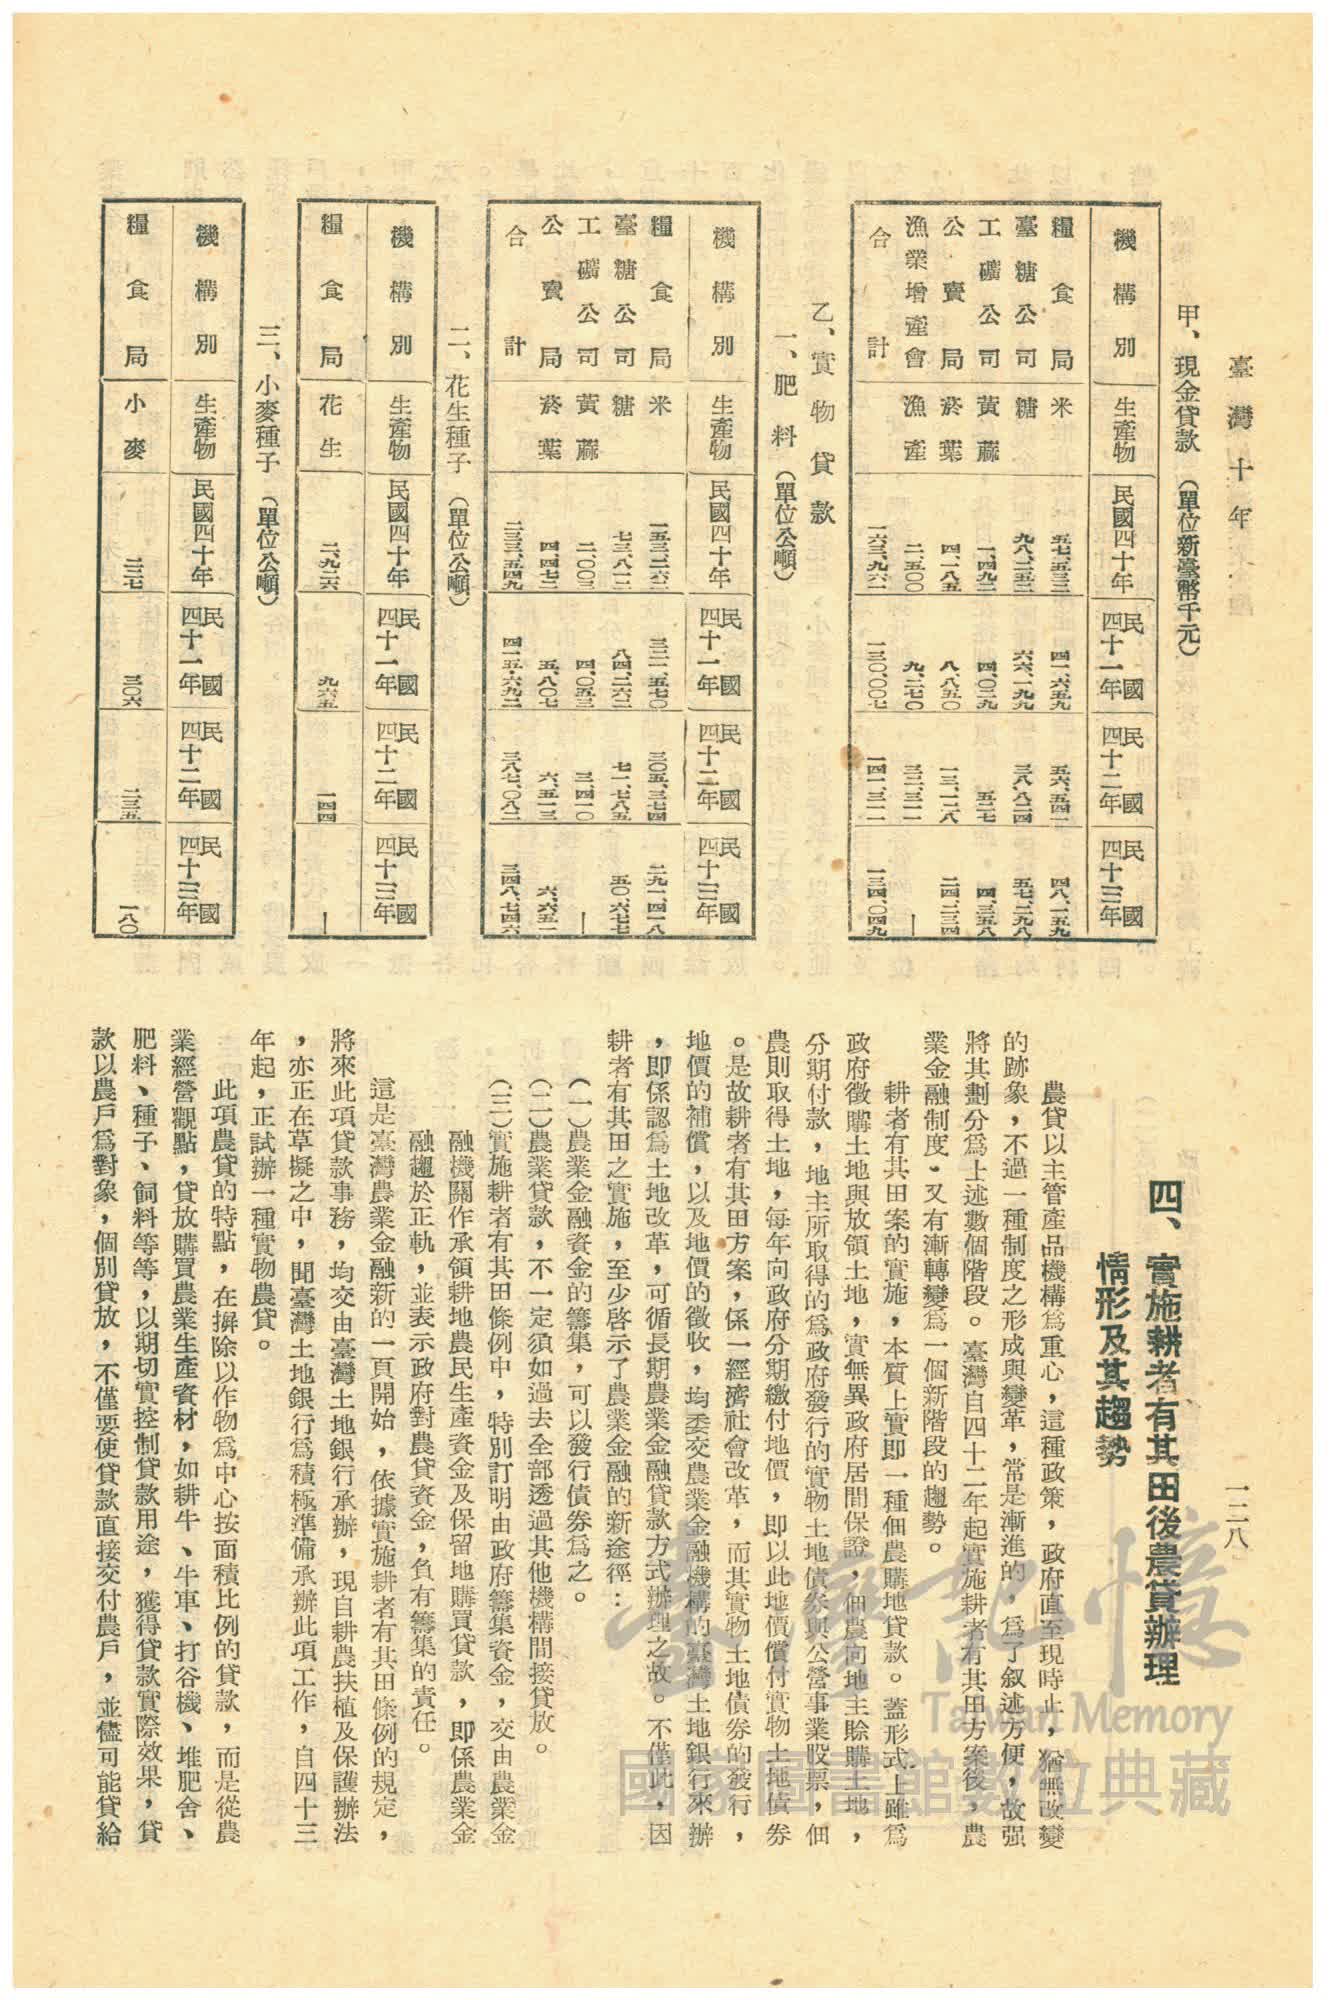 臺灣十年
一二八
甲、現金貸款（單位新臺幣千元）
機構別　生產物　民國四十年　民國四十一年　民國四十二年　民國四十三年
糧食局　米　五七、五三三　四一、六五九　五六、五四一　四八、一五九
臺糖公司　糖　九八、二五二　六六、一九九　三八、八二四　五七、二九八
工礦公司　黃蔴　一、四九二　四、〇二九　五二七　四、三五八
公賣局　菸葉　四、一八五　八、八五〇　一三、一二八　二四、二三四
漁業增產會　漁產　二、五〇〇　九、二七〇　三二、三一一　—
合計　一六三、九六二　一三〇、〇〇七　一四一、三二一　一三四、〇四九
乙、實物貸款
一、肥料（單位公噸）
機構別　生產物　民國四十年　民國四十一年　民國四十二年　民國四十三年
糧食局　米　一五三、二六二　三二一、五七〇　三〇五、三七四　二九一、四一八
臺糖公司　糖　七三、八一二　八四、二六二　七一、七八五　五〇、六七七
工礦公司　黃蔴　二、〇〇三　四、〇五三　三、四一〇　—
公賣局　菸葉　四、四七二　五、八〇七　六、五一三　六、六五一
合計　二三三、五四九　四一五、六九二　三八七、〇八二　三四八、七四六
二、花生種子（單位公噸）
機構別　生產物　民國四十年　民國四十一年　民國四十二年　民國四十三年
糧食局　花生　二、九二六　九六五　一四四　—
三、小麥種子（單位公噸）
機構別　生產物　民國四十年　民國四十一年　民國四十二年　民國四十三年
糧食局　小麥　二二七　三〇六　二三五　一八〇
四、實施耕者有其田後農貸辦理
情形及其趨勢
農貸以主管產品機構爲重心，這種政策，政府直至現時止，猶無改變
的跡象，不過一種制度之形成與變革，常是漸進的，爲了叙述方便，故强
將其劃分爲上述數個階段。臺灣自四十二年起實施耕者有其田方案後，農
業金融制度，又有漸轉變爲一個新階段的趨勢。
耕者有其田案的實施，本質上實即一種佃農購地貸款。蓋形式上雖爲
政府徵購土地與放領土地，實無異政府居間保證，佃農向地主賒購土地，
分期付款，地主所取得的爲政府發行的實物土地債券與公營事業股票，佃
農則取得土地，每年向政府分期繳付地價，即以此地價償付實物土地債券
。是故耕者有其田方案，係一經濟社會改革，而其實物土地債券的發行，
地價的補償，以及地價的徵收，均委交農業金融機構的臺灣土地銀行來辦
，即係認爲土地改革，可循長期農業金融貸款方式辦理之故。不僅此，因
耕者有其田之實施，至少啓示了農業金融的新途徑：
(一)農業金融資金的籌集，可以發行債券爲之。
(二)農業貸款，不一定須如過去全部透過其他機構間接貸放。
(三)實施耕者有其田條例中，特別訂明由政府籌集資金，交由農業金
融機關作承領耕地農民生產資金及保留地購買貸款，即係農業金
融趨於正軌，並表示政府對農貸資金，負有籌集的責任。
這是臺灣農業金融新的一頁開始，依據實施耕者有其田條例的規定，
將來此項貸款事務，均交由臺灣土地銀行承辦，現自耕農扶植及保護辦法
，亦正在草擬之中，聞臺灣土地銀行爲積極準備承辦此項工作，自四十三
年起，正試辦一種實物農貸。
此項農貸的特點，在摒除以作物爲中心按面積比例的貸款，而是從農
業經營觀點，貸放購買農業生產資材，如耕牛、牛車、打谷機、堆肥舍、
肥料、種子、飼料等等，以期切實控制貸款用途，獲得貸款實際效果，貸
款以農戶爲對象，個別貸放，不僅要使貸款直接交付農戶，並儘可能貸給
臺灣記憶
Taiwan Memory
國家圖書館數位典藏